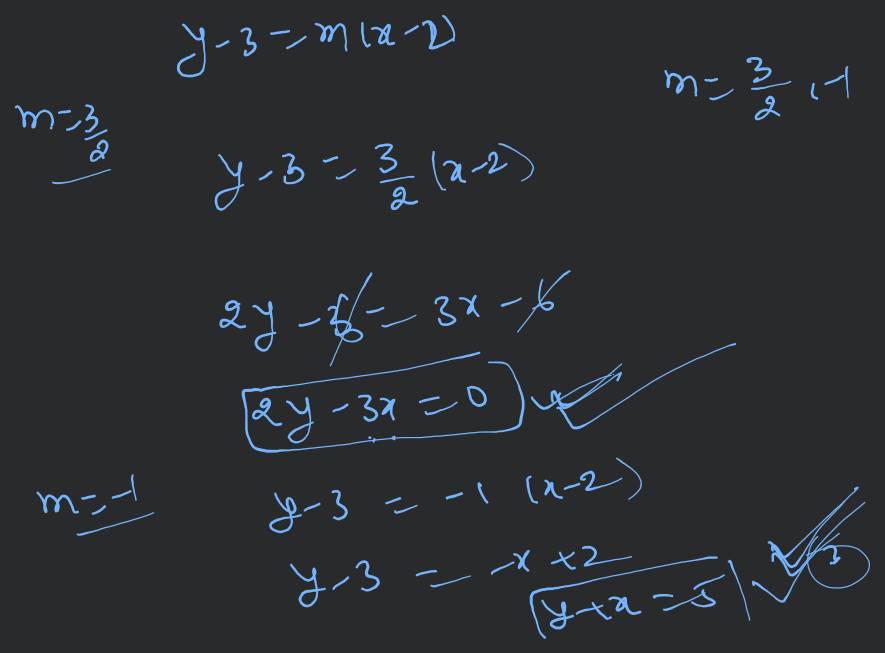 y-3 = m(x-2)
m = 3/2, -1
m = 3/2
y-3 = 3/2 (x-2)
2y - 6 = 3x - 6
2y - 3x = 0
m = -1
y-3 = -1 (x-2)
y-3 = -x+2
y+x = 5